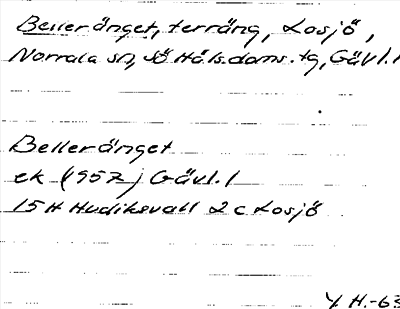 Belleränget, terräng, Losjö,
Norrala sn, Sö Häls. doms. tg, Gävl. l
Belleränget
ek (1957) Gävl. l
15H Hudiksvall 2 c Losjö
Y. H. -63